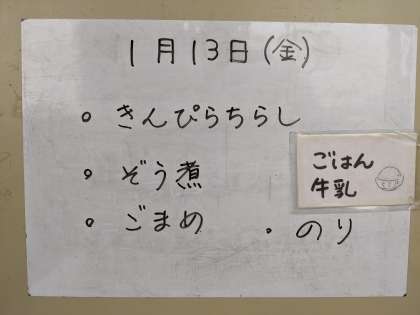 1月13日(金)
。きんぴらちらし
。ぞう煮
。ごまめ
・のり
ごはん
牛乳